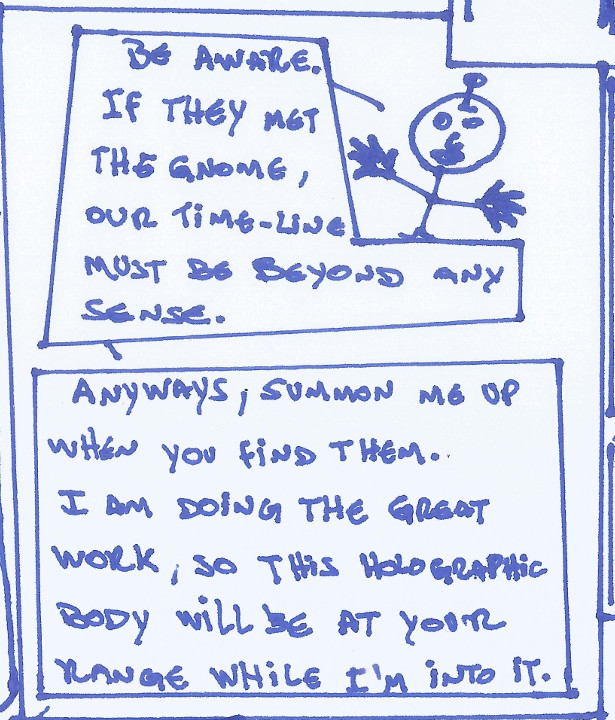 BE AWARE.
IF THEY MET
THE GNOME,
OUR TIME-LINE
MUST BE BEYOND ANY
SENSE.
ANYWAYS, SUMMON ME UP
WHEN YOU FIND THEM.
I AM DOING THE GREAT
WORK, SO THIS HOLOGRAPHIC
BODY WILL BE AT YOUR
RANGE WHILE I'M INTO IT.